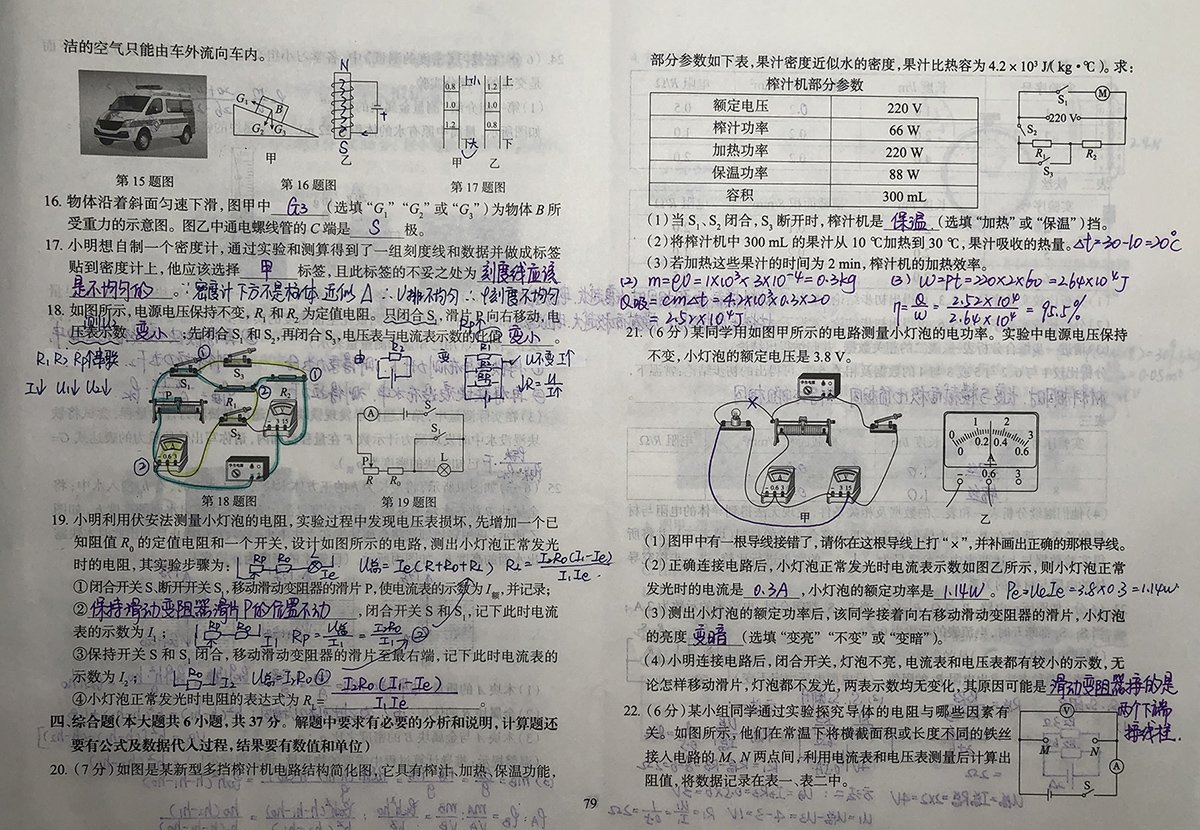 洁的空气只能由车外流向车内。
第15题图
G₁ B
G₂ G₃
甲
N
S
乙
第16题图
0.8 上小
1.0
1.2
下大
甲
1.2 上
1.0
0.8
下
乙
第17题图
16. 物体沿着斜面匀速下滑，图甲中 G₃ （选填“G₁”“G₂”或“G₃”）为物体B所
受重力的示意图。图乙中通电螺线管的C端是 S 极。
17. 小明想自制一个密度计，通过实验和测算得到了一组刻度线和数据并做成标签
贴到密度计上，他应该选择 甲 标签，且此标签的不妥之处为 刻度线应该
是不均匀的 。∵密度计下方不是柱体 近似△ ∴V排不均匀 ∴ρ刻度不均匀
18. 如图所示，电源电压保持不变，R₁和R₂为定值电阻。只闭合S₁，滑片P向右移动，电
压表示数 变小 。先闭合S₁和S₂，再闭合S₃，电压表与电流表示数的比值 变小 。
R₁ R₂ Rp串联
I↓ U₁↓ U₂↓
由 R₂ 变
U不变 I↑
↓R=U/I↑
S₁ S₃
P R₁ R₂
S₂
第18题图
A S
S₁
P L
R R₀
第19题图
19. 小明利用伏安法测量小灯泡的电阻，实验过程中发现电压表损坏，先增加一个已
知阻值R₀的定值电阻和一个开关，设计如图所示的电路，测出小灯泡正常发光
时的电阻，其实验步骤为：
①闭合开关S、断开开关S₁，移动滑动变阻器的滑片P，使电流表的示数为I额，并记录；
② 保持滑动变阻器滑片P的位置不动 ，闭合开关S和S₁，记下此时电流
表的示数为I₁；
③保持开关S和S₁闭合，移动滑动变阻器的滑片至最右端，记下此时电流表的
示数为I₂；
④小灯泡正常发光时电阻的表达式为R_L= I₂R₀(I₁-Ie)/I₁Ie 。
四、综合题(本大题共6小题，共37分。解题中要求有必要的分析和说明，计算题还
要有公式及数据代入过程，结果要有数值和单位)
20. (7分)如图是某新型多挡榨汁机电路结构简化图，它具有榨汁、加热、保温功能，
79
部分参数如下表，果汁密度近似水的密度，果汁比热容为4.2×10³ J/(kg·℃)。求：
榨汁机部分参数
额定电压 220 V
榨汁功率 66 W
加热功率 220 W
保温功率 88 W
容积 300 mL
S₁ M
220 V
S₂
R₁ R₂
S₃
(1)当S₁、S₂闭合，S₃断开时，榨汁机是 保温 (选填“加热”或“保温”)挡。
(2)将榨汁机中300 mL的果汁从10 ℃加热到30 ℃，果汁吸收的热量。Δt=30-10=20℃
(3)若加热这些果汁的时间为2 min，榨汁机的加热效率。
(2) m=ρV=1×10³×3×10⁻⁴=0.3kg
Q吸=cmΔt=4.2×10³×0.3×20
=2.52×10⁴J
(3) W=Pt=220×2×60=2.64×10⁴J
η=Q/W=2.52×10⁴/2.64×10⁴=95.5%
21. (6分)某同学用如图甲所示的电路测量小灯泡的电功率。实验中电源电压保持
不变，小灯泡的额定电压是3.8 V。
甲
0 1 2 3
0 0.2 0.4 0.6
A
- 0.6 3
乙
(1)图甲中有一根导线接错了，请你在这根导线上打“×”，并补画出正确的那根导线。
(2)正确连接电路后，小灯泡正常发光时电流表示数如图乙所示，则小灯泡正常
发光时的电流是 0.3A ，小灯泡的额定功率是 1.14W 。Pe=UeIe=3.8×0.3=1.14W
(3)测出小灯泡的额定功率后，该同学接着向右移动滑动变阻器的滑片，小灯泡
的亮度 变暗 (选填“变亮”“不变”或“变暗”)。
(4)小明连接电路后，闭合开关，灯泡不亮，电流表和电压表都有较小的示数，无
论怎样移动滑片，灯泡都不发光，两表示数均无变化，其原因可能是 滑动变阻器接的是
两个下端
接线柱.
22. (6分)某小组同学通过实验探究导体的电阻与哪些因素有
关。如图所示，他们在常温下将横截面积或长度不同的铁丝
接入电路的M、N两点间，利用电流表和电压表测量后计算出
阻值，将数据记录在表一、表二中。
V
M N
A
S